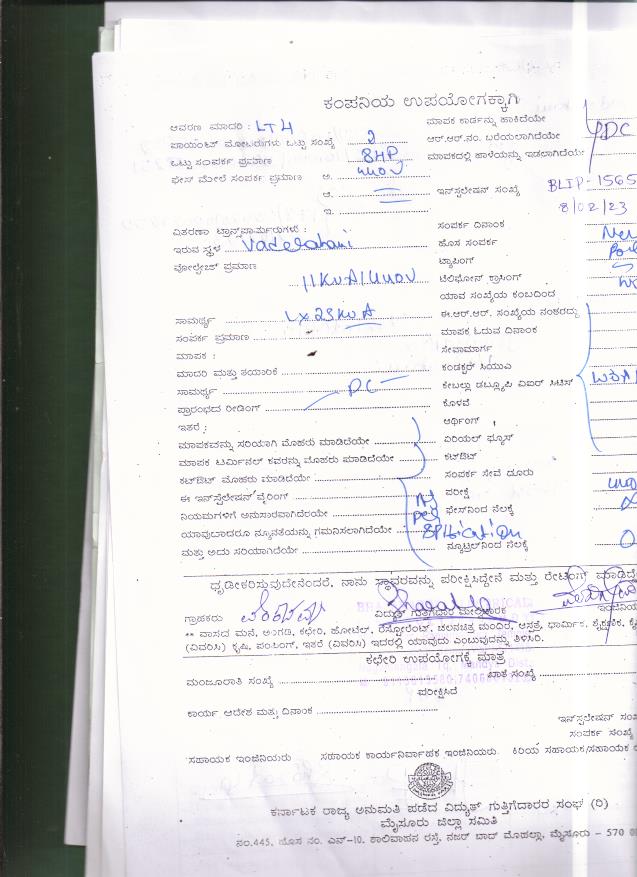 ಕಂಪನಿಯ ಉಪಯೋಗಕ್ಕಾಗಿ
ಆವರಣ ಮಾದರಿ : LT4 ಮಾಪಕ ಕಾರ್ಡನ್ನು ಹಾಕಿದೆಯೇ
ಪಾಯಿಂಟ್ ಮೋಟರುಗಳು ಒಟ್ಟು ಸಂಖ್ಯೆ 2 ಆರ್.ಆರ್.ನಂ. ಬರೆಯಲಾಗಿದೆಯೇ PDC
ಒಟ್ಟು ಸಂಪರ್ಕ ಪ್ರಮಾಣ 8HP ಮಾಪಕದಲ್ಲಿ ಹಾಳೆಯನ್ನು ಇಡಲಾಗಿದೆಯೇ
ಫೇಸ್ ಮೇಲೆ ಸಂಪರ್ಕ ಪ್ರಮಾಣ ಅ. 440V
ಆ. ಇನ್‌ಸ್ಟಲೇಷನ್ ಸಂಖ್ಯೆ BLIP-1565
ಇ. 8/02/23
ವಿತರಣಾ ಟ್ರಾನ್ಸ್‌ಫಾರ್ಮರುಗಳು : ಸಂಪರ್ಕ ದಿನಾಂಕ
ಇರುವ ಸ್ಥಳ ಹೊಸ ಸಂಪರ್ಕ
ವೋಲ್ಟೇಜ್ ಪ್ರಮಾಣ ಟ್ಯಾಪಿಂಗ್
11KVA/440V ಟೆಲಿಫೋನ್ ಕ್ರಾಸಿಂಗ್
ಯಾವ ಸಂಖ್ಯೆಯ ಕಂಬದಿಂದ
ಸಾಮರ್ಥ್ಯ 1x25KVA ಈ.ಆರ್.ಆರ್. ಸಂಖ್ಯೆಯ ನಂತರದ್ದು
ಸಂಪರ್ಕ ಪ್ರಮಾಣ ಮಾಪಕ ಓದುವ ದಿನಾಂಕ
ಮಾಪಕ : ಸೇವಾಮಾರ್ಗ
ಮಾದರಿ ಮತ್ತು ತಯಾರಿಕೆ ಕಂಡಕ್ಟರ್ ಸಿಯುಎ
ಸಾಮರ್ಥ್ಯ DC ಕೇಬಲ್ಲು ಡಬ್ಲ್ಯೂಪಿ ವಿಐಆರ್ ಸಿಟಿಸ್
ಪ್ರಾರಂಭದ ರೀಡಿಂಗ್ ಕೊಳವೆ
ಇತರೆ : ಆರ್ಥಿಂಗ್
ಮಾಪಕವನ್ನು ಸರಿಯಾಗಿ ಮೊಹರು ಮಾಡಿದೆಯೇ ಏರಿಯಲ್ ಫ್ಯೂಸ್
ಮಾಪಕ ಟರ್ಮಿನಲ್ ಕವರನ್ನು ಮೊಹರು ಮಾಡಿದೆಯೇ ಕಟ್‌ಔಟ್
ಕಟ್‌ಔಟ್ ಮೊಹರು ಮಾಡಿದೆಯೇ ಸಂಪರ್ಕ ಸೇವೆ ದೂರು
ಈ ಇನ್‌ಸ್ಟಲೇಷನ್ ವೈರಿಂಗ್ ಪರೀಕ್ಷೆ
ನಿಯಮಗಳಿಗೆ ಅನುಸಾರವಾಗಿದೆಯೇ ಫೇಸ್‌ನಿಂದ ನೆಲಕ್ಕೆ
ಯಾವುದಾದರೂ ನ್ಯೂನತೆಯನ್ನು ಗಮನಿಸಲಾಗಿದೆಯೇ
ಮತ್ತು ಅದು ಸರಿಯಾಗಿದೆಯೇ ನ್ಯೂಟ್ರಲ್‌ನಿಂದ ನೆಲಕ್ಕೆ
ಧೃಡೀಕರಿಸುವುದೇನೆಂದರೆ, ನಾನು ಸ್ಥಾವರವನ್ನು ಪರೀಕ್ಷಿಸಿದ್ದೇನೆ ಮತ್ತು ರೇಟಿಂಗ್ ಮಾಡಿದ್ದೆ
ಗ್ರಾಹಕರು ವಿದ್ಯುತ್ ಗುತ್ತಿಗೆದಾರ ಮೇಲ್ವಿಚಾರಕ
** ವಾಸದ ಮನೆ, ಅಂಗಡಿ, ಕಛೇರಿ, ಹೋಟೆಲ್, ರೆಸ್ಟೋರೆಂಟ್, ಚಲನಚಿತ್ರ ಮಂದಿರ, ಆಸ್ಪತ್ರೆ, ಧಾರ್ಮಿಕ, ಶೈಕ್ಷಣಿಕ,
(ವಿವರಿಸಿ) ಕೃಷಿ, ಪಂಪಿಂಗ್, ಇತರೆ (ವಿವರಿಸಿ) ಇದರಲ್ಲಿ ಯಾವುದು ಎಂಬುವುದನ್ನು ತಿಳಿಸಿರಿ.
ಕಛೇರಿ ಉಪಯೋಗಕ್ಕೆ ಮಾತ್ರ
ಮಂಜೂರಾತಿ ಸಂಖ್ಯೆ ಖಾತೆ ಸಂಖ್ಯೆ
ಪರೀಕ್ಷಿಸಿದೆ
ಕಾರ್ಯ ಆದೇಶ ಮತ್ತು ದಿನಾಂಕ
ಇನ್‌ಸ್ಟಲೇಷನ್
ಸಂಪರ್ಕ ಸಂಖ್ಯೆ
ಸಹಾಯಕ ಇಂಜಿನಿಯರು ಸಹಾಯಕ ಕಾರ್ಯನಿರ್ವಾಹಕ ಇಂಜಿನಿಯರು. ಕಿರಿಯ ಸಹಾಯಕ/ಸಹಾಯಕ
ಕರ್ನಾಟಕ ರಾಜ್ಯ ಅನುಮತಿ ಪಡೆದ ವಿದ್ಯುತ್ ಗುತ್ತಿಗೆದಾರರ ಸಂಘ (ರಿ)
ಮೈಸೂರು ಜಿಲ್ಲಾ ಸಮಿತಿ
ನಂ.445, ಹೊಸ ನಂ. ಎನ್-10, ಶಾಲಿವಾಹನ ರಸ್ತೆ, ನಜರ್ ಬಾದ್ ಮೊಹಲ್ಲಾ, ಮೈಸೂರು - 570 0